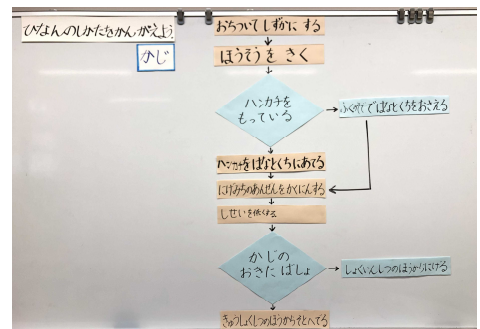 ひなんのしかたをかんがえよう
かじ
おちついてしずかに する
ほうそうを きく
ハンカチを
もっている
ふくやてではなとくちをおさえる
ハンカチをはなとくちにあてる
にげみちのあんぜんをかくにんする
しせいを低くする
かじの
おきた ばしょ
しょくいんしつのほうからにげる
きゅうしょくしつのほうからそとへでる